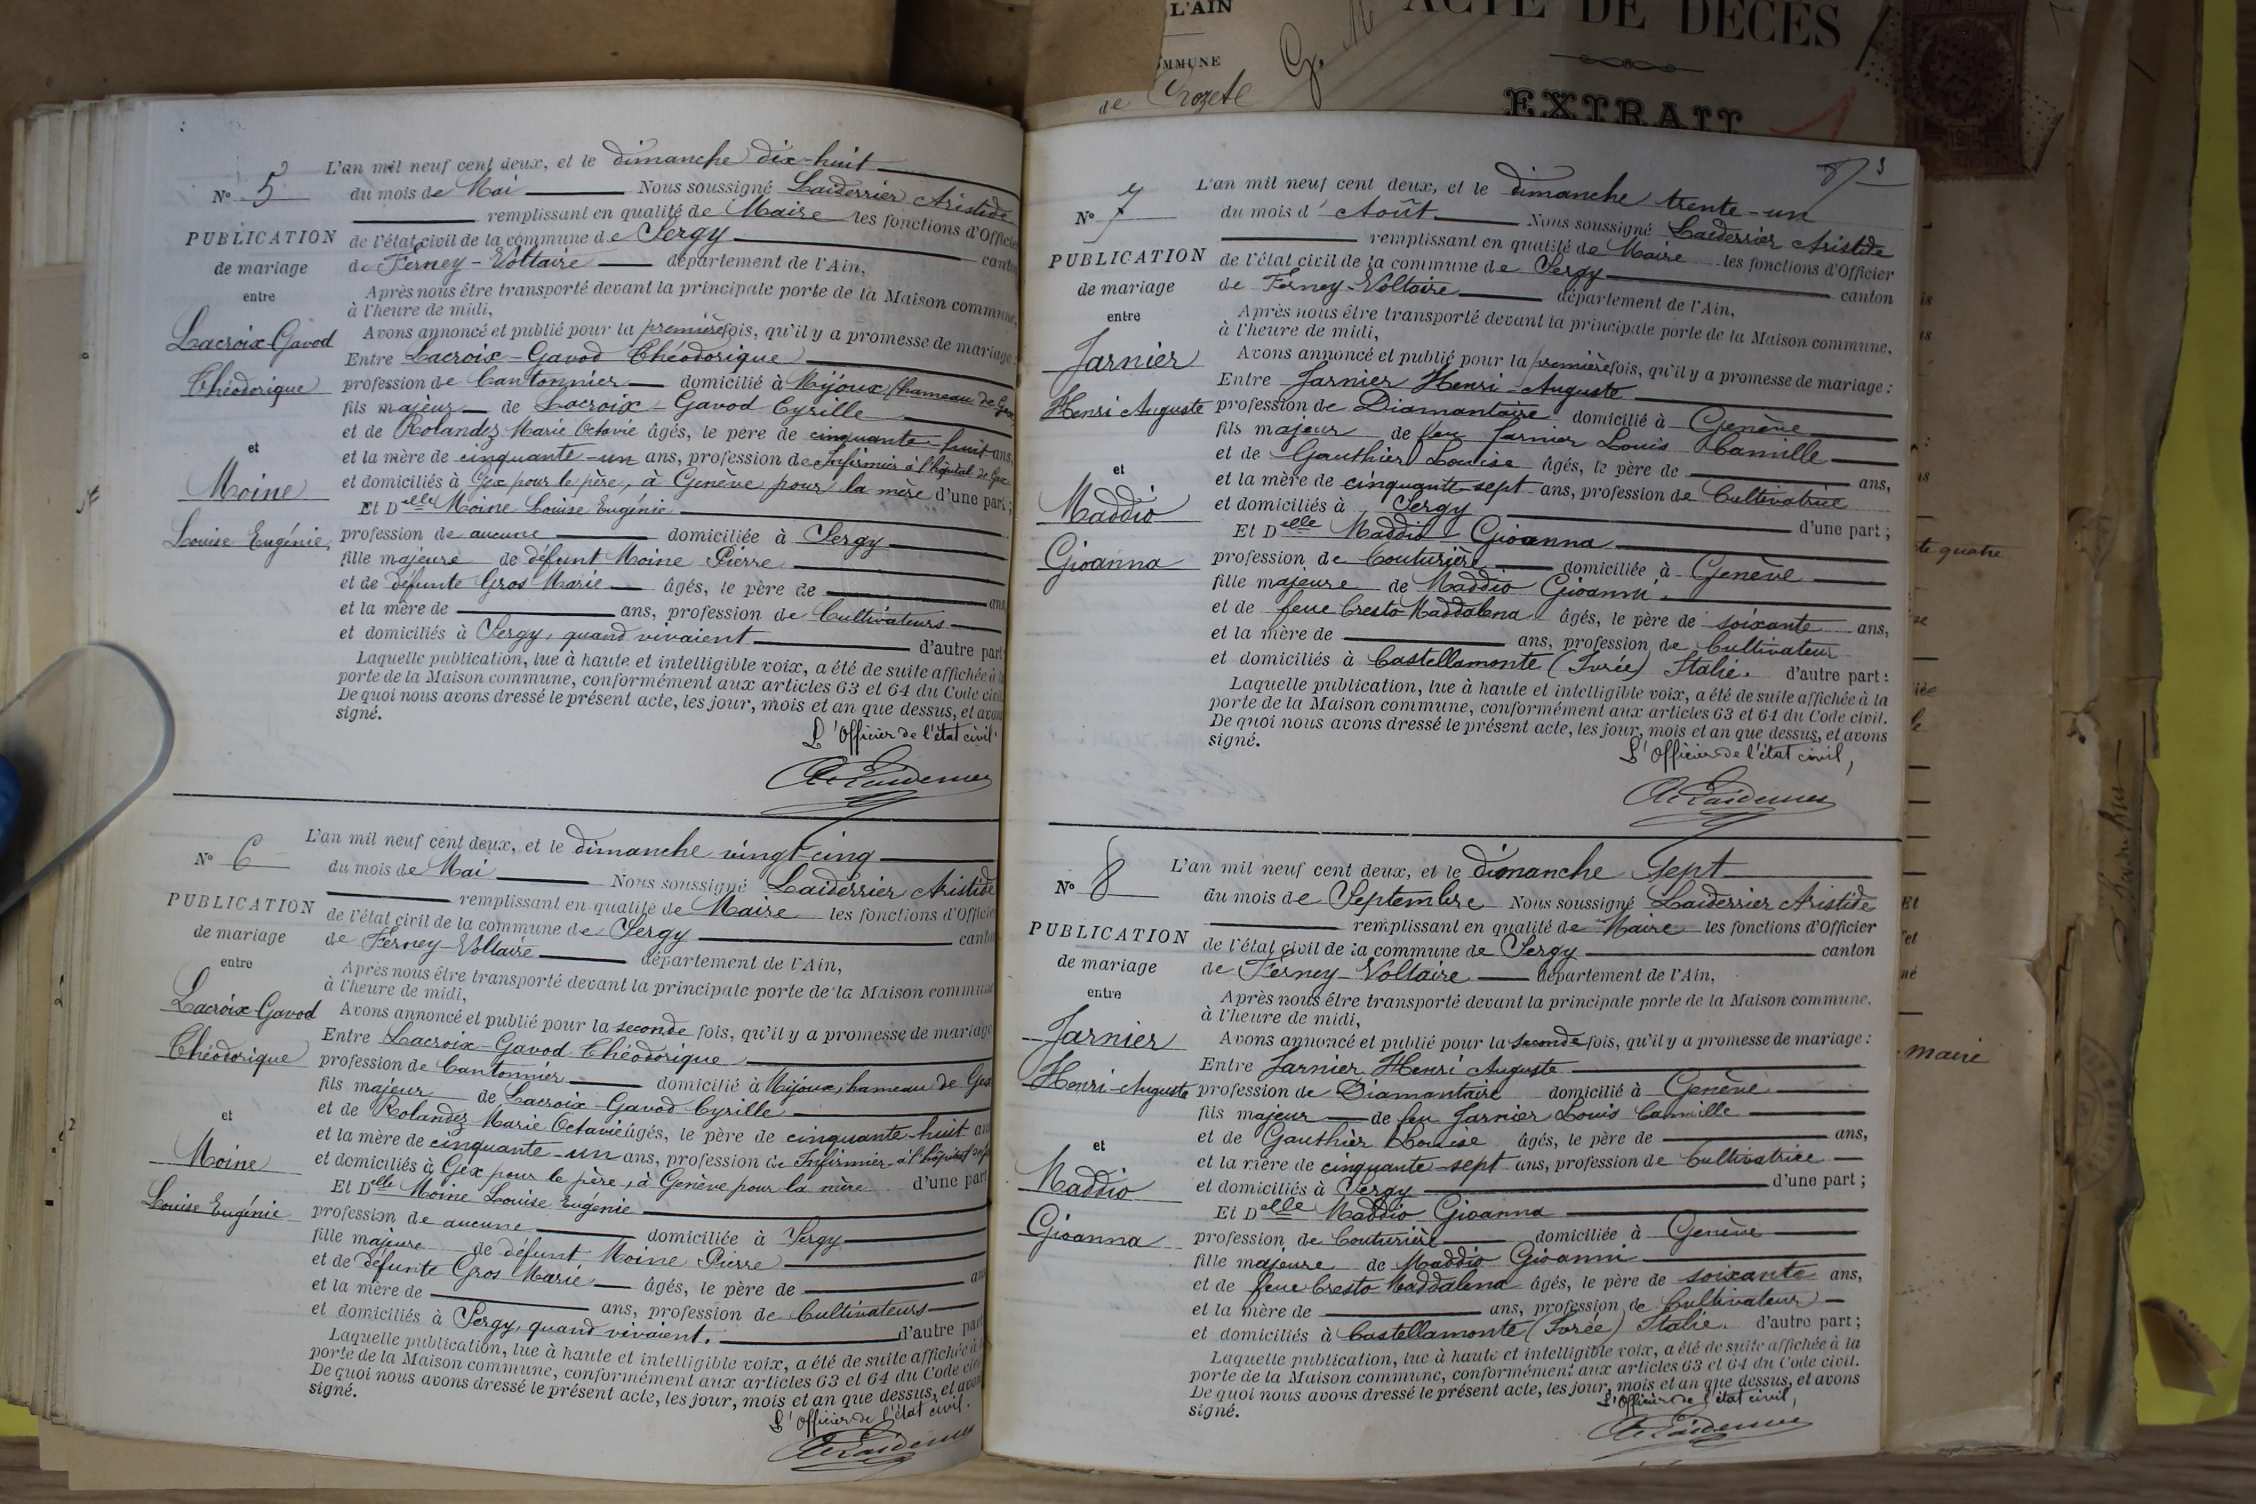 L'AIN
COMMUNE
de Crozet
G. M
ACTE DE DÉCÈS
EXTRAIT
L'an mil neuf cent deux, et le dimanche dix-huit
N° 5
du mois de Mai Nous soussigné Laiderrier Aristide
remplissant en qualité de Maire les fonctions d'Officier
PUBLICATION
de l'état civil de la commune de Sergy canton
de mariage
de Ferney-Voltaire département de l'Ain,
entre
Après nous être transporté devant la principale porte de la Maison commune,
à l'heure de midi,
Lacroix-Gavod
Avons annoncé et publié pour la première fois, qu'il y a promesse de mariage
Entre Lacroix-Gavod Théodorique
Théodorique
profession de Cantonnier domicilié à Mijoux (hameau de Gex)
fils majeur de Lacroix-Gavod Cyrille
et de Rolandez Marie Octavie âgés, le père de cinquante-huit ans,
et
et la mère de cinquante-un ans, profession de Infirmier à l'hôpital de Gex
Moine
et domiciliés à Gex pour le père, à Genève pour la mère d'une part;
Et Delle Moine Louise Eugénie
Louise Eugénie,
profession de aucune domiciliée à Sergy
fille majeure de défunt Moine Pierre
et de défunte Gros Marie âgés, le père de ans,
et la mère de ans, profession de Cultivateurs
et domiciliés à Sergy, quand vivaient d'autre part
Laquelle publication, lue à haute et intelligible voix, a été de suite affichée à la
porte de la Maison commune, conformément aux articles 63 et 64 du Code civil
De quoi nous avons dressé le présent acte, les jour, mois et an que dessus, et avons
signé.
L'Officier de l'état civil.
At Laiderrier
L'an mil neuf cent deux, et le dimanche vingt-cinq
N° 6
du mois de Mai Nous soussigné Laiderrier Aristide
remplissant en qualité de Maire les fonctions d'Officier
PUBLICATION
de l'état civil de la commune de Sergy canton
de mariage
de Ferney-Voltaire département de l'Ain,
entre
Après nous être transporté devant la principale porte de la Maison commune
à l'heure de midi,
Lacroix-Gavod
Avons annoncé et publié pour la seconde fois, qu'il y a promesse de mariage
Entre Lacroix-Gavod Théodorique
Théodorique
profession de Cantonnier domicilié à Mijoux, hameau de Gex
fils majeur de Lacroix-Gavod Cyrille
et de Rolandez Marie Octavie âgés, le père de cinquante-huit ans
et
et la mère de cinquante-un ans, profession de Infirmier à l'hôpital de Gex
Moine
et domiciliés à Gex pour le père, à Genève pour la mère d'une part
Et Delle Moine Louise Eugénie
Louise Eugénie
profession de aucune domiciliée à Sergy
fille majeure de défunt Moine Pierre
et de défunte Gros Marie âgés, le père de ans
et la mère de ans, profession de Cultivateurs
et domiciliés à Sergy, quand vivaient. d'autre part
Laquelle publication, lue à haute et intelligible voix, a été de suite affichée à la
porte de la Maison commune, conformément aux articles 63 et 64 du Code civil
De quoi nous avons dressé le présent acte, les jour, mois et an que dessus, et avons
signé.
L'Officier de l'état civil.
At Laiderrier
3
L'an mil neuf cent deux, et le dimanche trente-un
N° 7
du mois d'Août Nous soussigné Laiderrier Aristide
remplissant en qualité de Maire les fonctions d'Officier
PUBLICATION
de l'état civil de la commune de Sergy canton
de mariage
de Ferney-Voltaire département de l'Ain,
entre
Après nous être transporté devant la principale porte de la Maison commune,
à l'heure de midi,
Jarnier
Avons annoncé et publié pour la première fois, qu'il y a promesse de mariage :
Entre Jarnier Henri-Auguste
Henri Auguste
profession de Diamantaire domicilié à Genève
fils majeur de feu Jarnier Louis Camille
et de Gauthier Louise âgés, le père de ans,
et
et la mère de cinquante-sept ans, profession de Cultivatrice
Maddio
et domiciliés à Sergy d'une part ;
Et Delle Maddio Gioanna
Gioanna
profession de Couturière domiciliée à Genève
fille majeure de Maddio Gioanni.
et de feue Cresto Maddalena âgés, le père de soixante ans,
et la mère de ans, profession de Cultivateur
et domiciliés à Castellamonte (Ivrée) Italie. d'autre part :
Laquelle publication, lue à haute et intelligible voix, a été de suite affichée à la
porte de la Maison commune, conformément aux articles 63 et 64 du Code civil.
De quoi nous avons dressé le présent acte, les jour, mois et an que dessus, et avons
signé.
L'Officier de l'état civil,
At Laiderrier
L'an mil neuf cent deux, et le dimanche sept
N° 8
du mois de Septembre Nous soussigné Laiderrier Aristide
remplissant en qualité de Maire les fonctions d'Officier
PUBLICATION
de l'état civil de la commune de Sergy canton
de mariage
de Ferney-Voltaire département de l'Ain,
entre
Après nous être transporté devant la principale porte de la Maison commune.
à l'heure de midi,
Jarnier
Avons annoncé et publié pour la seconde fois, qu'il y a promesse de mariage :
Entre Jarnier Henri Auguste
Henri-Auguste
profession de Diamantaire domicilié à Genève
fils majeur de feu Jarnier Louis Camille
et de Gauthier Louise âgés, le père de ans,
et
et la mère de cinquante-sept ans, profession de Cultivatrice
Maddio
et domiciliés à Sergy d'une part ;
Et Delle Maddio Gioanna
Gioanna
profession de Couturière domiciliée à Genève
fille majeure de Maddio Gioanni
et de feue Cresto Maddalena âgés, le père de soixante ans,
et la mère de ans, profession de Cultivateur
et domiciliés à Castellamonte (Ivrée) Italie. d'autre part ;
Laquelle publication, lue à haute et intelligible voix, a été de suite affichée à la
porte de la Maison commune, conformément aux articles 63 et 64 du Code civil.
De quoi nous avons dressé le présent acte, les jour, mois et an que dessus, et avons
signé.
L'Officier de l'état civil,
At Laiderrier
te quatre
maire